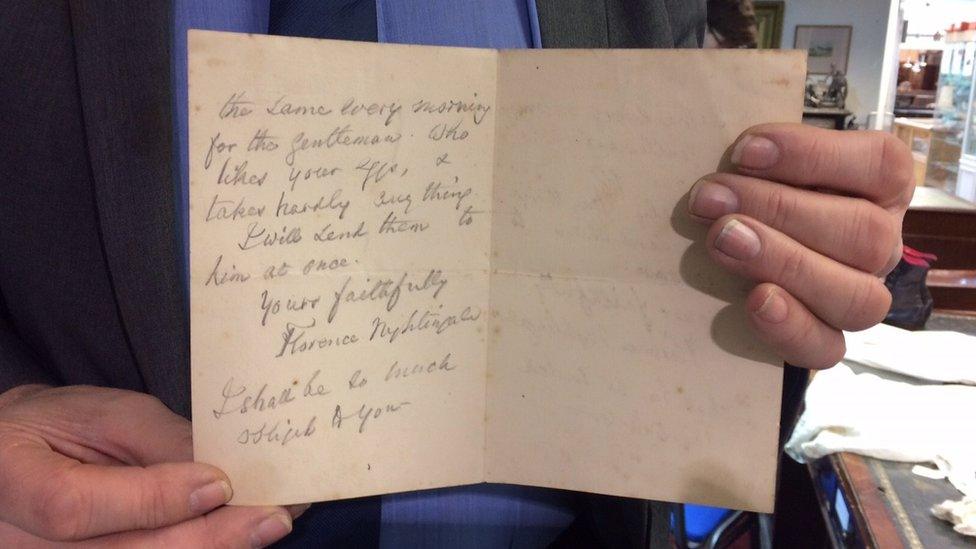 the same every morning
for the gentleman. who
likes your eggs, &
takes hardly any thing
I will send them to
him at once.
Yours faithfully
Florence Nightingale
I shall be so much
obliged to you